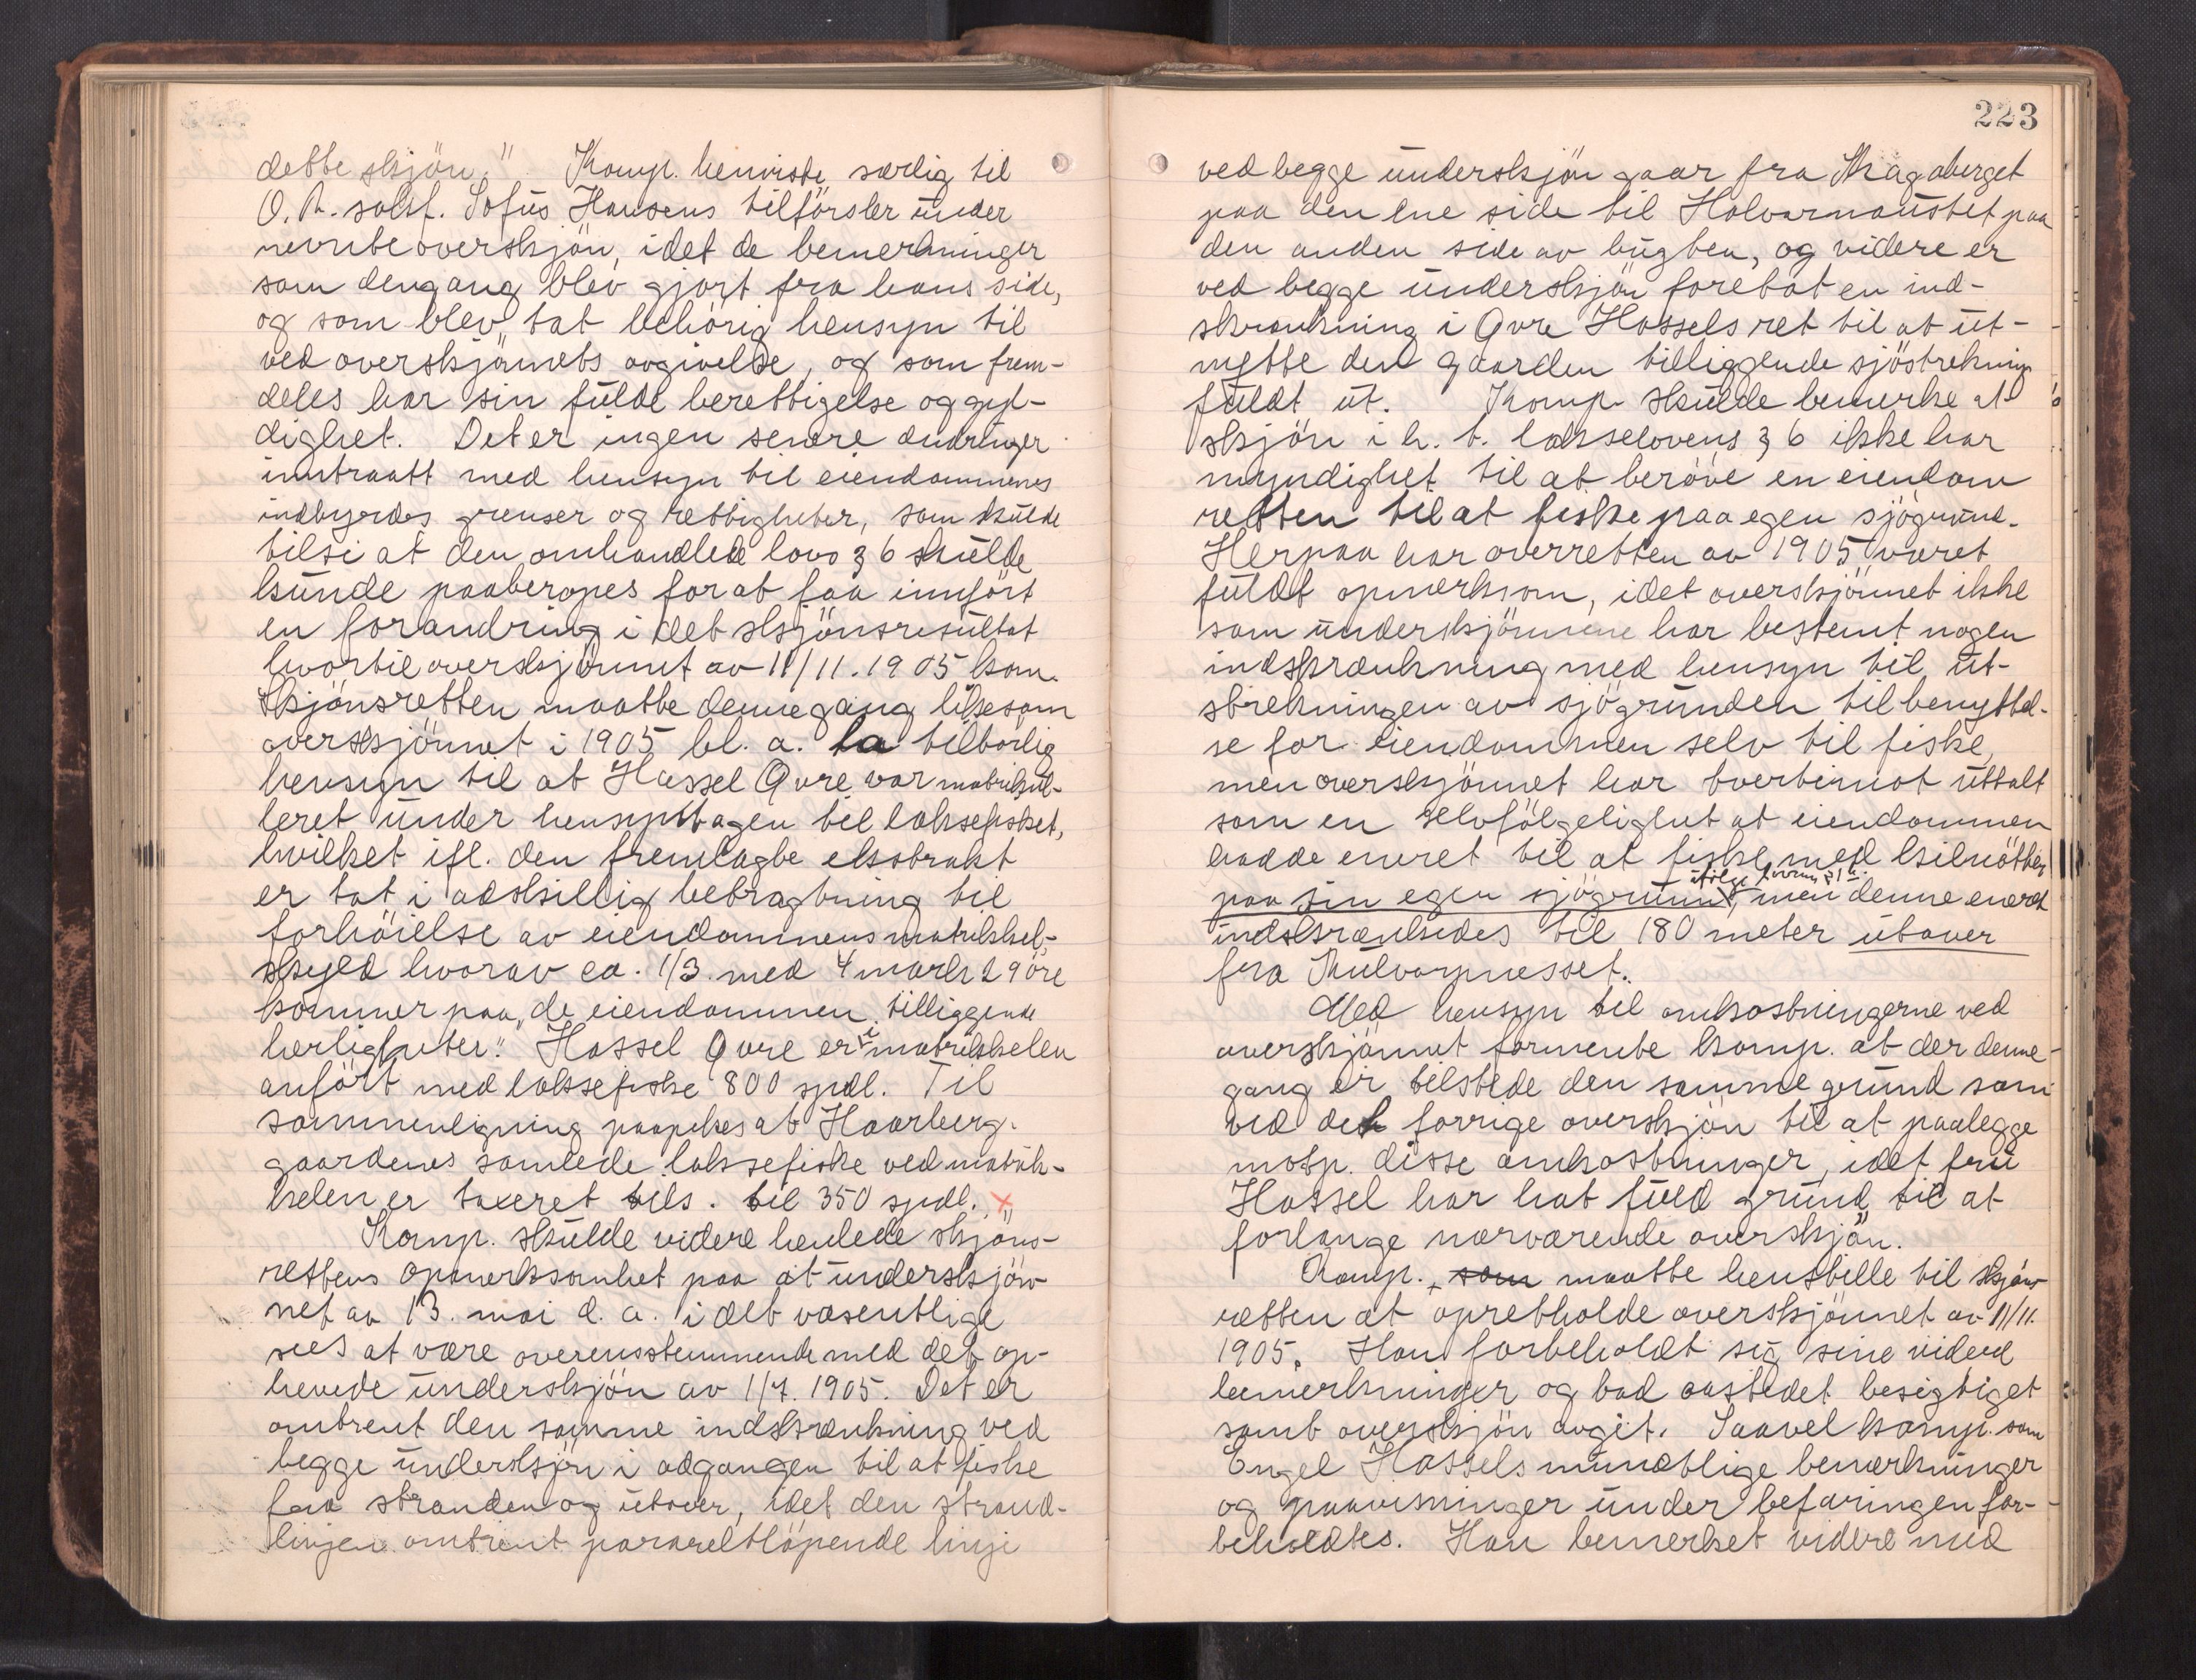 dette skjön." Komp. henviste særlig til
O. R. sakf. Sofus Hansens tilförsler under
nevnte overskjön, idet de bemerkninger
som dengang blev gjort fra hans side,
og som blev tat behörig hensyn til
ved overskjönnets avgivelse, og som frem-
deles har sin fulde berettigelse og gyl-
dighet. Det er ingen senere ændringer
inntraatt med hensyn til eiendommenes
indbyrdes grenser og rettigheter, som skulde
tilsi at den omhandlede lovs § 6 skulde
kunde paaberopes for at faa innfört
en forandring i det skjönsresultat
hvortil overskjönnet av 11/11. 1905 kom.
Skjönsretten maatte dennegang likesom
overskjönnet i 1905 bl. a. ta tilbörlig
hensyn til at Hassel Övre var matrikul-
leret under hensyntagen til laksefisket,
hvilket ifl. den fremlagte ekstrakt
er tat i adskillig betragtning til
forhöielse av eiendommens matrikkel-
skyld hvorav ca. 1/3 med 4 mark 29 öre
kommer paa „de eiendommen tilliggende
herligheter." Hassel Övre er i matrikkelen
anfört med laksefiske 800 spdl. Til
sammenligning paapekes at Haarberg-
gaardenes samlede laksefiske ved matrik-
kelen er taxeret tils. til 350 spdl. x
Komp. skulde videre henlede skjöns-
rettens opmerksomhet paa at underskjön-
net av 13. mai d. a. i det væsentlige
sees at være overensstemmende med det op-
hevede underskjön av 1/7. 1905. Det er
omtrent den samme indskrænkning ved
begge underskjön i adgangen til at fiske
fra stranden og utover, idet den strand-
linjen omtrent parareltlöpende linje
223
ved begge underskjön gaar fra Kragaberget
paa den ene side til Halvarnaustet paa
den anden side av bugten, og videre er
ved begge underskjön foretat en ind-
skrænkning i Övre Hassels ret til at ut-
nytte den gaarden tilliggende sjöstrekning
fuldt ut. Komp. skulde bemerke at
skjön i h. t. lakselovens § 6 ikke har
myndighet til at beröve en eiendom
retten til at fiske paa egen sjögrund.
Herpaa har overretten av 1905 været
fuldt opmerksom, idet overskjönnet ikke
som underskjönnene har bestemt nogen
indskrænkning med hensyn til ut-
strekningen av sjögrunden til benyttel-
se for eiendommen selv til fiske,
men overskjönnet har tvertimot uttalt
som en selvfölgelighet at eiendommen
hadde eneret til at fiske med kilnötter
paa sin egen sjögrund, men denne eneret
indskrænkedes til 180 meter utover
fra Kulvarpnesset.
Med hensyn til omkostningerne ved
overskjönnet formente komp. at der denne-
gang er tilstede den samme grund som
ved det forrige overskjön til at paalegge
motp. disse omkostninger, idet fru
Hassel har hat fuld grund til at
forlange nærværende overskjön.
Komp., som maatte henstille til skjöns-
retten at opretholde overskjönnet av 11/11.
1905. Han forbeholdt sig sine videre
bemerkninger og bad aastedet besigtiget
samt overskjön avgit. Saavel komp. som
Engel Hassels mundtlige bemerkninger
og paavisninger under befaringen for-
beholdtes. Han bemerket videre med